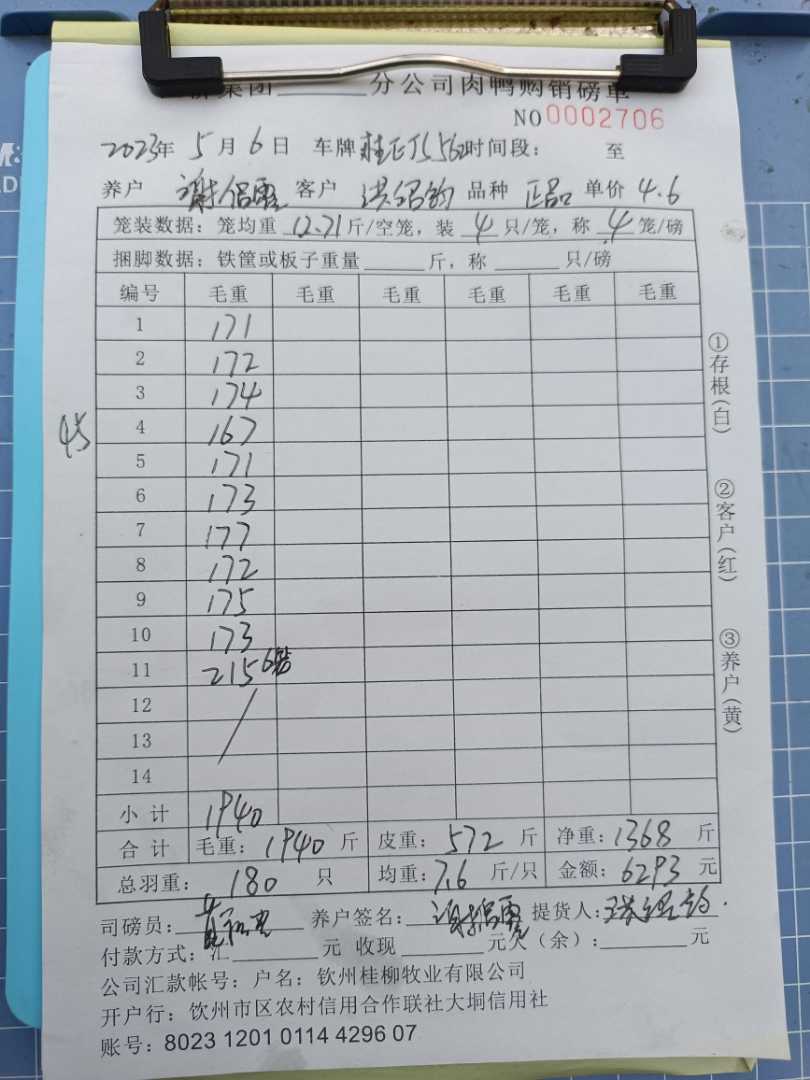 分公司肉鸭购销磅单
NO 0002706
2023年 5月 6日 车牌 时间段： 至
养户 客户 品种 正品 单价 4.6
笼装数据：笼均重 12.71 斤/空笼，装 4 只/笼，称 4 笼/磅
捆脚数据：铁筐或板子重量 斤，称 只/磅
编号 毛重 毛重 毛重 毛重 毛重 毛重
1 171
2 172
3 174
4 167
5 171
6 173
7 177
8 172
9 175
10 173
11 215 6
12
13
14
45
小计 1940
合计 毛重：1940 斤 皮重：572 斤 净重：1368 斤
总羽重：180 只 均重：7.6 斤/只 金额：6293 元
司磅员： 养户签名： 提货人：
付款方式：汇 元 收现 元欠（余）： 元
公司汇款帐号：户名：钦州桂柳牧业有限公司
开户行：饮州市区农村信用合作联社大垌信用社
账号：8023 1201 0114 4296 07
①存根（白）
②客户（红）
③养户（黄）